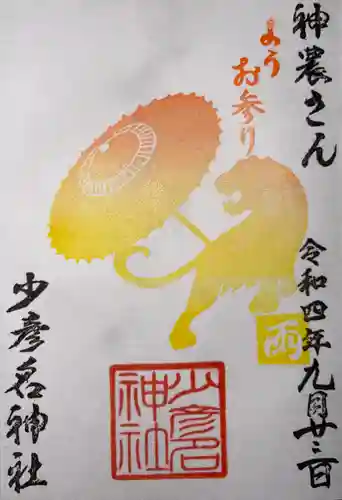 神農さん
令和四年九月廿三日
ようお参り
雨
少彦名神社
少彦名
神社